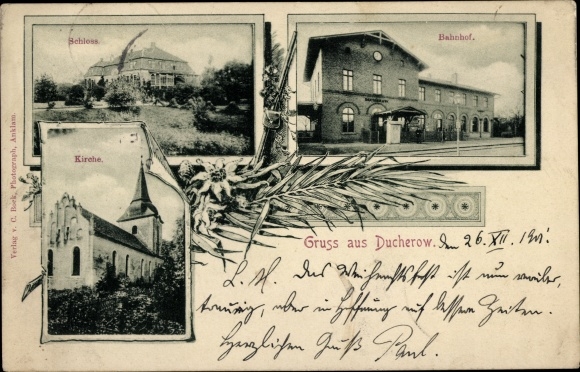 Schloss.
Bahnhof.
Kirche.
Verlag v. C. Beck, Photograph, Anklam.
Gruss aus Ducherow. den 26. XII. 190
L. M. Das Weihnachtsfest ist nun vorüber,
traurig, aber in Hoffnung auf bessere Zeiten.
Herzlichen Gruß Paul.